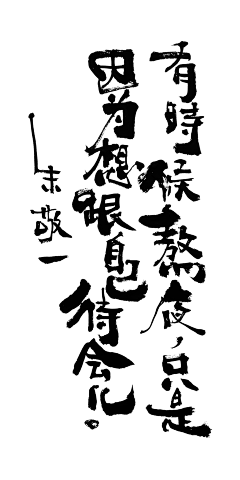 有時候熬夜，只是
因为想跟自己待会儿。
朱敬一